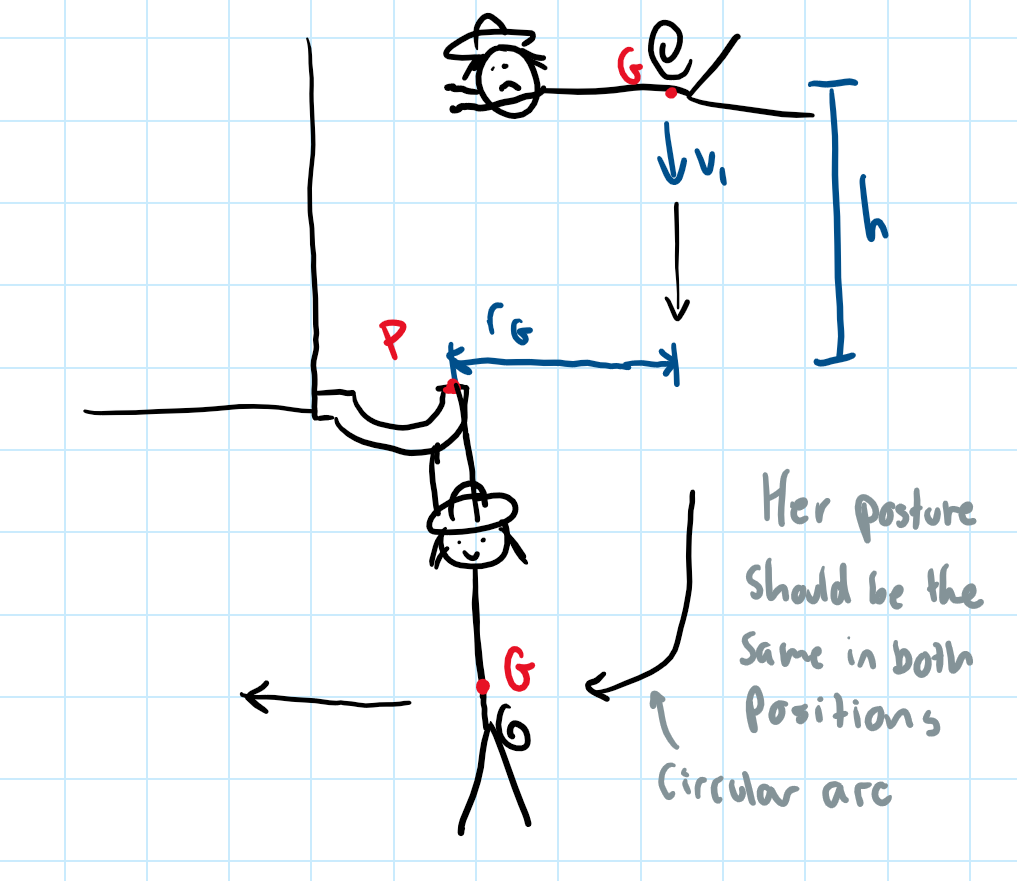 G
v₁
h
r_G
P
Her posture
should be the
same in both
Positions
G
Circular arc